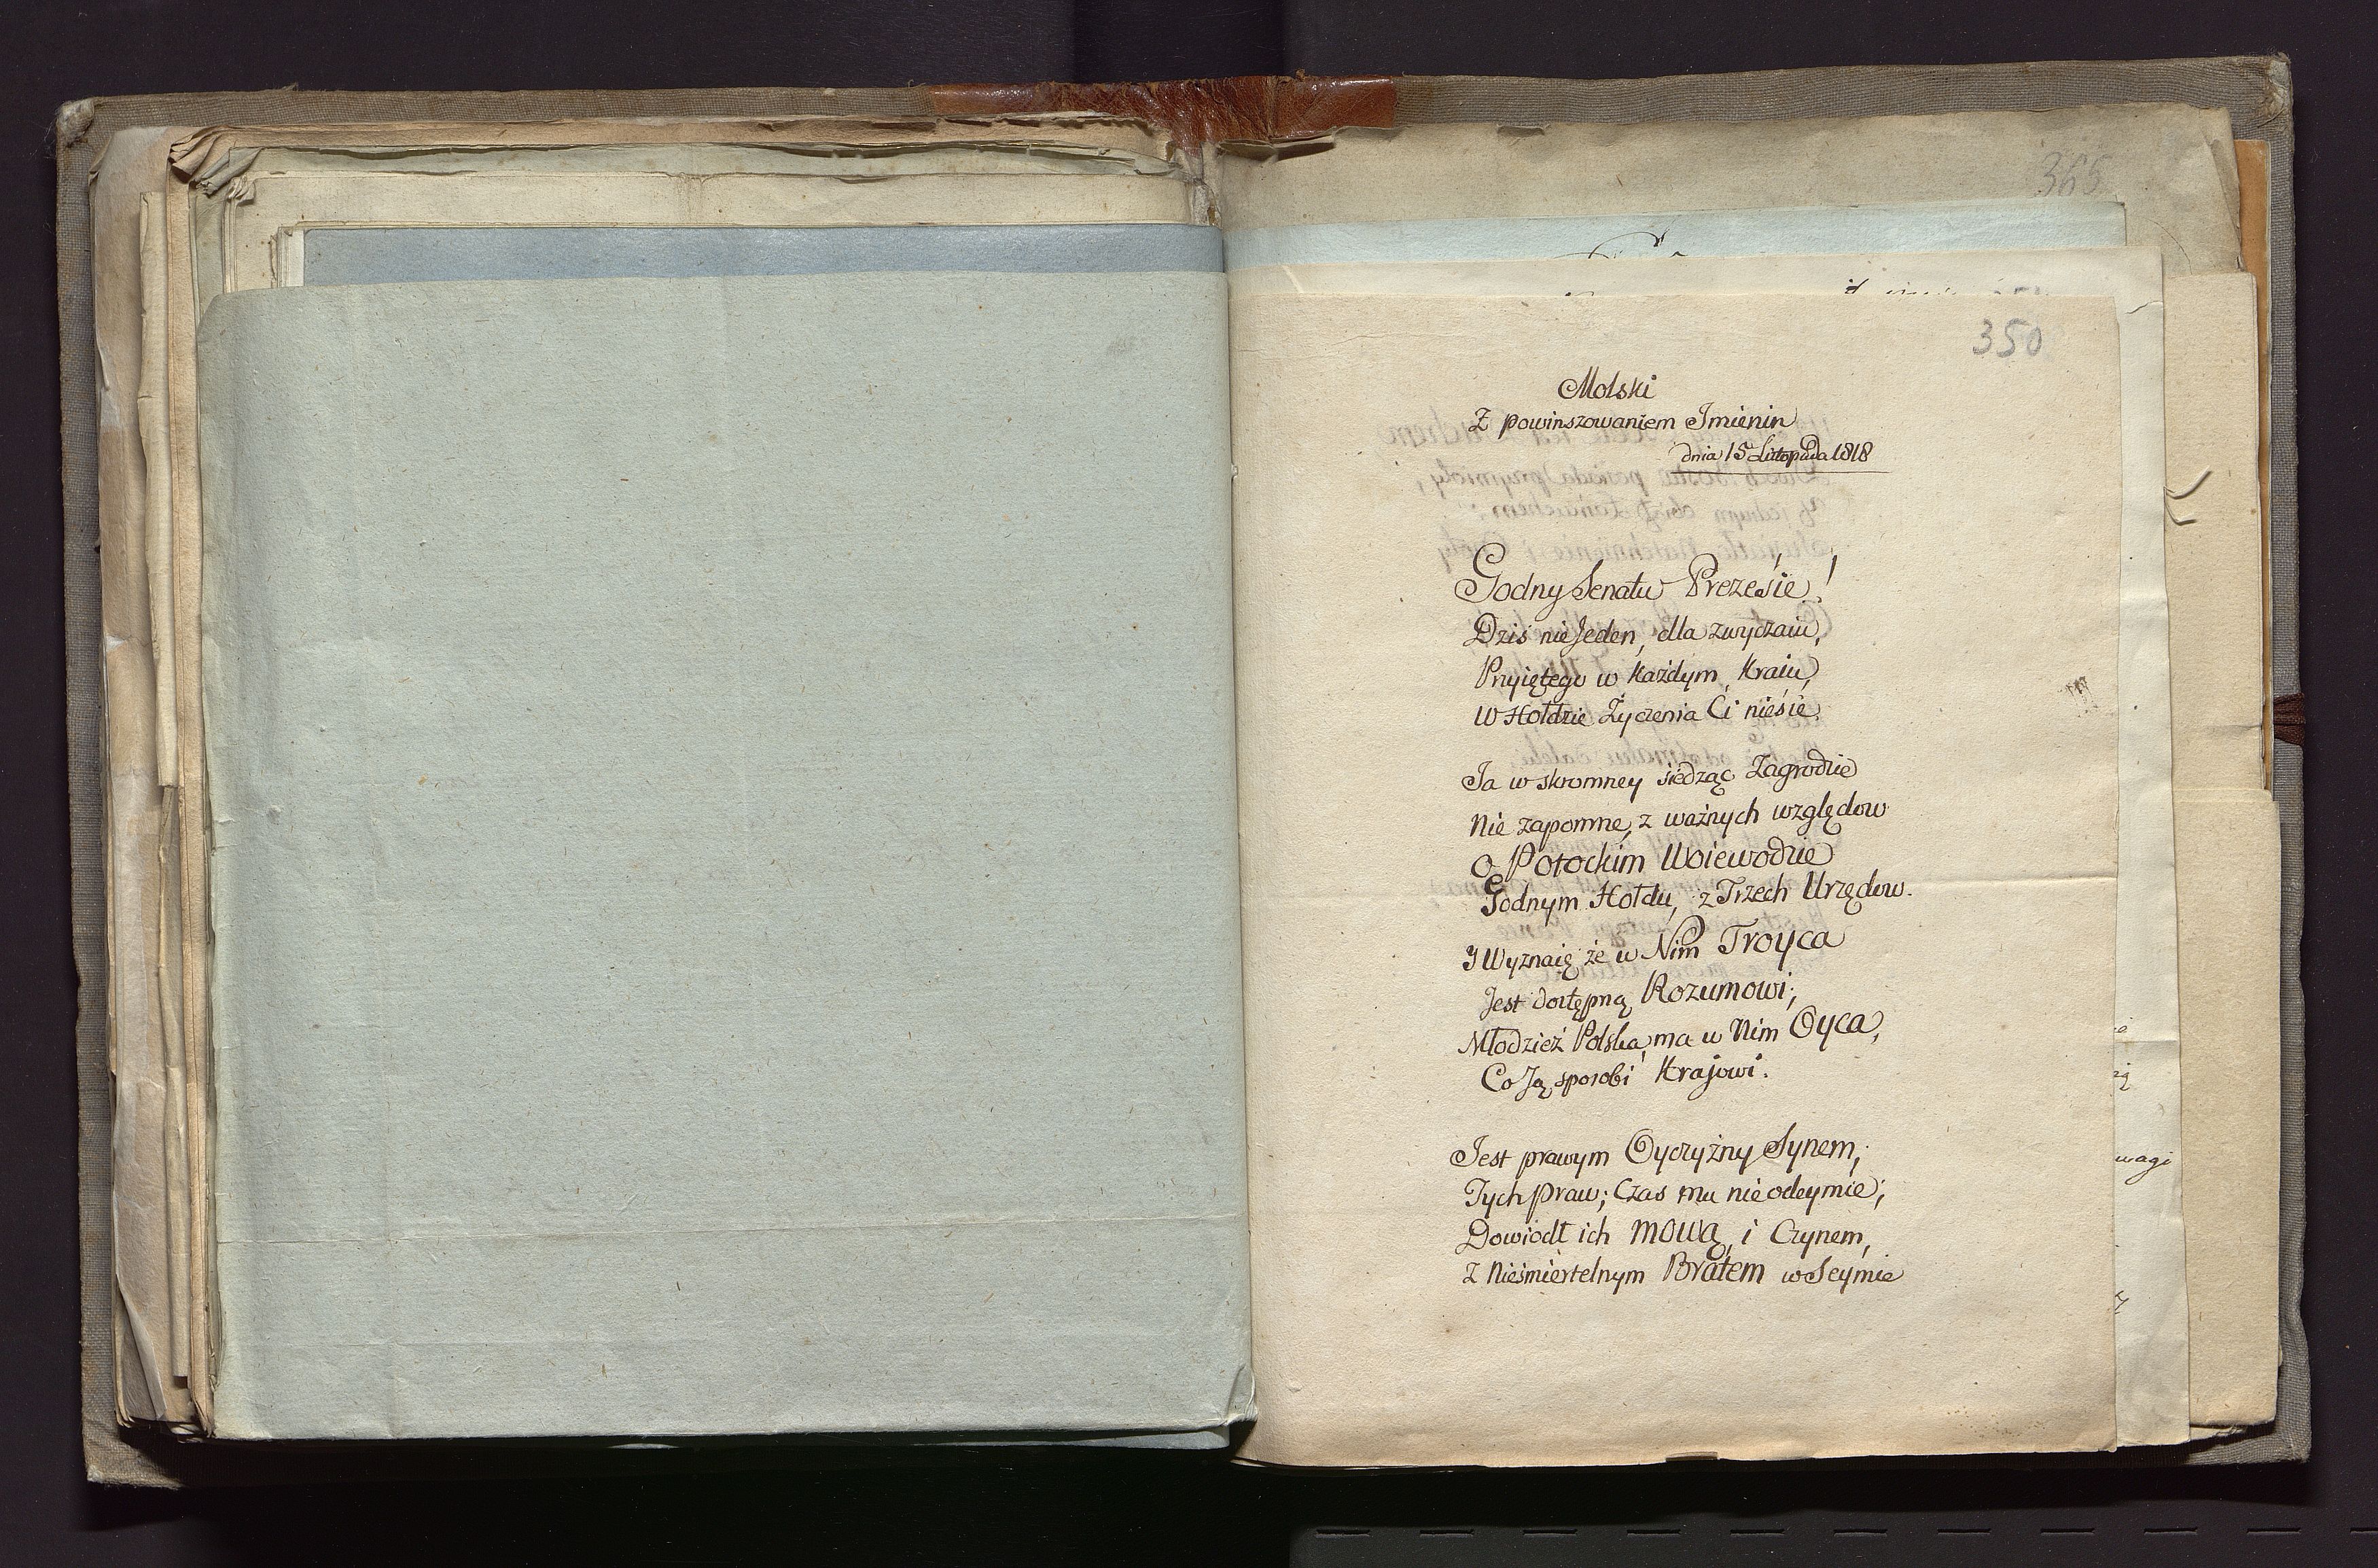 365
350
Molski
Z powinszowaniem Imienin
dnia 15 Listopada 1818
Godny Senatu Prezesie!
Dziś nie Jeden, dla zwyczaiu,
Przyiętego w Każdym Kraiu,
W Hołdzie Życzenia Ci niesie.
Ja w skromney siedząc Zagrodzie
Nie zapomnę, z ważnych względow
O Potockim Woiewodzie
Godnym Hołdu, z Trzech Urzędow.
I Wyznaię że w Nim Troyca
Jest dostępną Rozumowi;
Młodzież Polska, ma w Nim Oyca,
Co Ją sposobi Krajowi.
Jest prawym Oyczyżny Synem,
Tych praw; Czas mu nie odeymie;
Dowiodł ich mową, i Czynem,
Z Nieśmiertelnym Bratem w Seymie
wagi